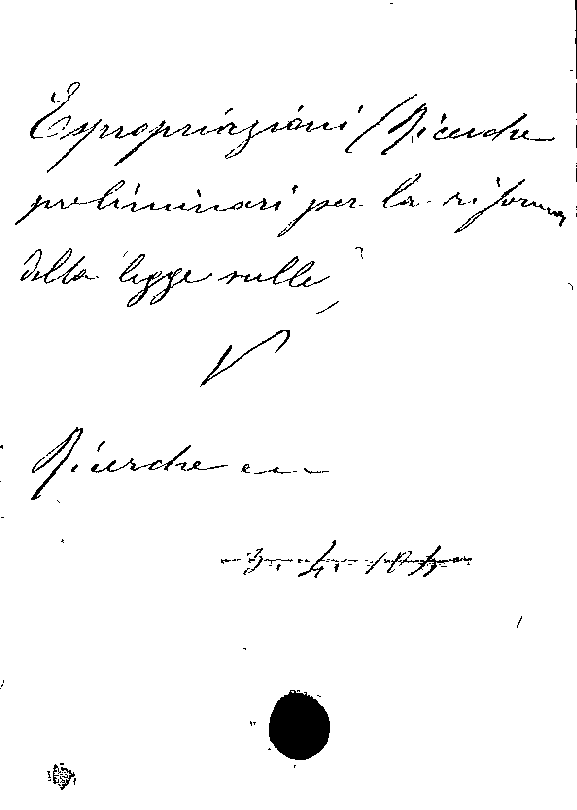 Espropriazioni (Ricerche
preliminari per la riforma
della legge sulle
V
Ricerche